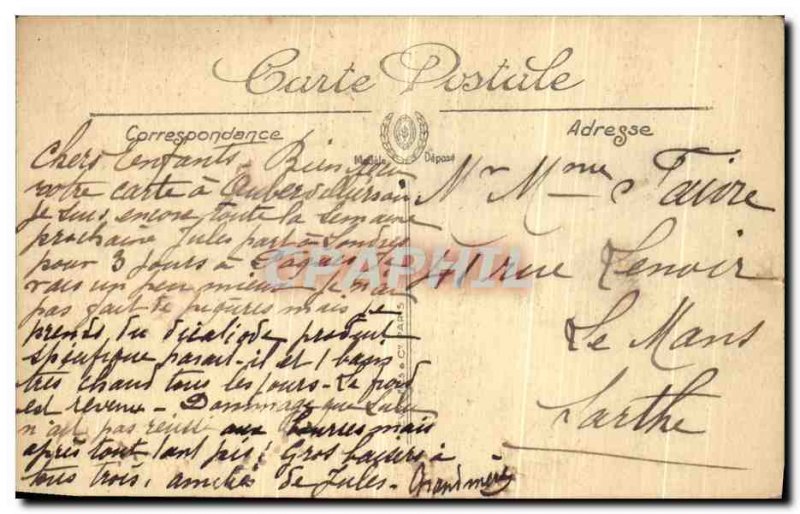 Carte Postale
Correspondance
Adresse
Modèle Déposé
Chers Enfants - Bien reçu
votre carte à
Je suis encore toute la semaine
prochaine Jules part à Londres
pour 3 jours à
vais un peu mieux Je n'ai
pas fait de piqures mais je
prends du produit
spécifique parait-il et 1 bain
très chaud tous les jours - Le poid
est revenu - Dommage que Lulu
n'ait pas réussi aux bourses mais
après tout tant pis! Gros baisers à
tous trois, amitiés de Jules - Grandmère
Mr Mme Faivre
rue Lenoir
Le Mans
Sarthe
CPAPHIL
PARIS